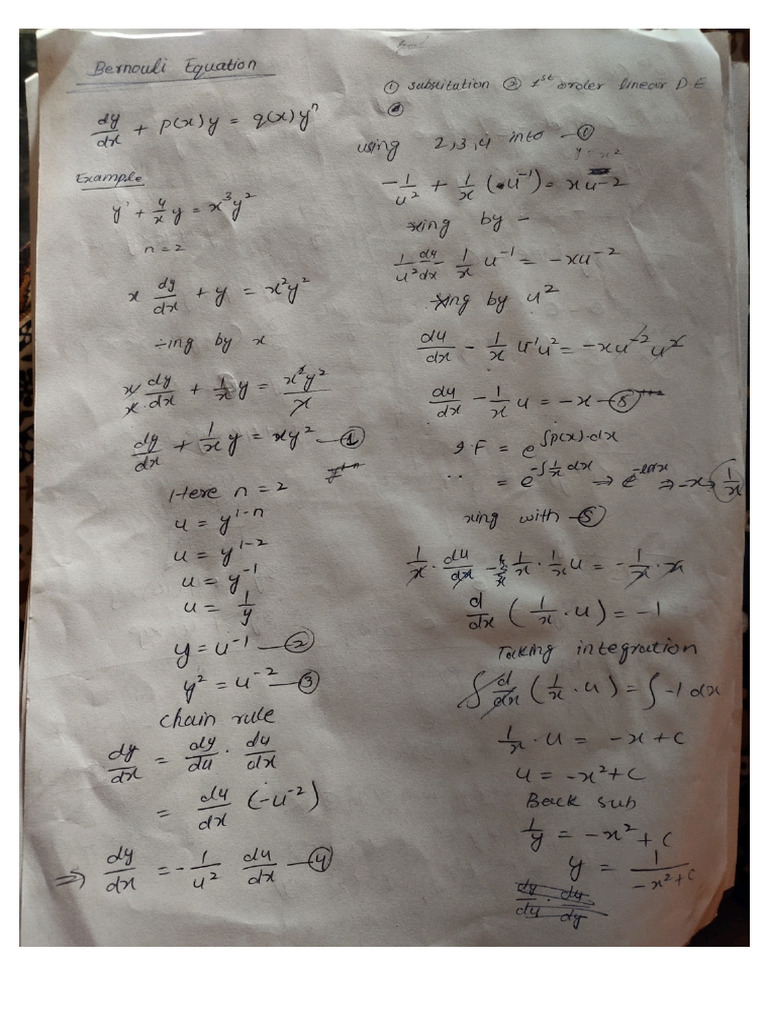 Bernouli Equation
dy/dx + p(x)y = q(x)yⁿ
Example
y' + 4/x y = x³y²
n = 2
x dy/dx + y = x²y²
÷ing by x
x/x · dy/dx + 1/x y = x²y²/x
dy/dx + 1/x y = xy² — ①
Here n = 2
u = y¹⁻ⁿ
u = y¹⁻²
u = y⁻¹
u = 1/y
y = u⁻¹ — ②
y² = u⁻² — ③
chain rule
dy/dx = dy/du · du/dx
= du/dx (-u⁻²)
⇒ dy/dx = - 1/u² du/dx — ④
① substitation ② 1st order linear D.E
using 2,3,4 into — ①
- 1/u² + 1/x (u⁻¹) = xu⁻²
xing by -
1/u² du/dx 1/x u⁻¹ = -xu⁻²
xing by u²
du/dx - 1/x u⁻¹u² = -xu⁻²u²
du/dx - 1/x u = -x — ⑤
I.F = e^∫p(x)·dx
= e^-∫1/x dx ⇒ e^-lnx ⇒ -x ⇒ 1/x
xing with — ⑤
1/x · du/dx - 1/x · 1/x u = - 1/x · x
d/dx (1/x · u) = -1
Taking integration
∫ d/dx (1/x · u) = ∫ -1 dx
1/x · u = -x + c
u = -x² + c
Back sub
1/y = -x² + c
y = 1/-x² + c
dy/du · du/dy